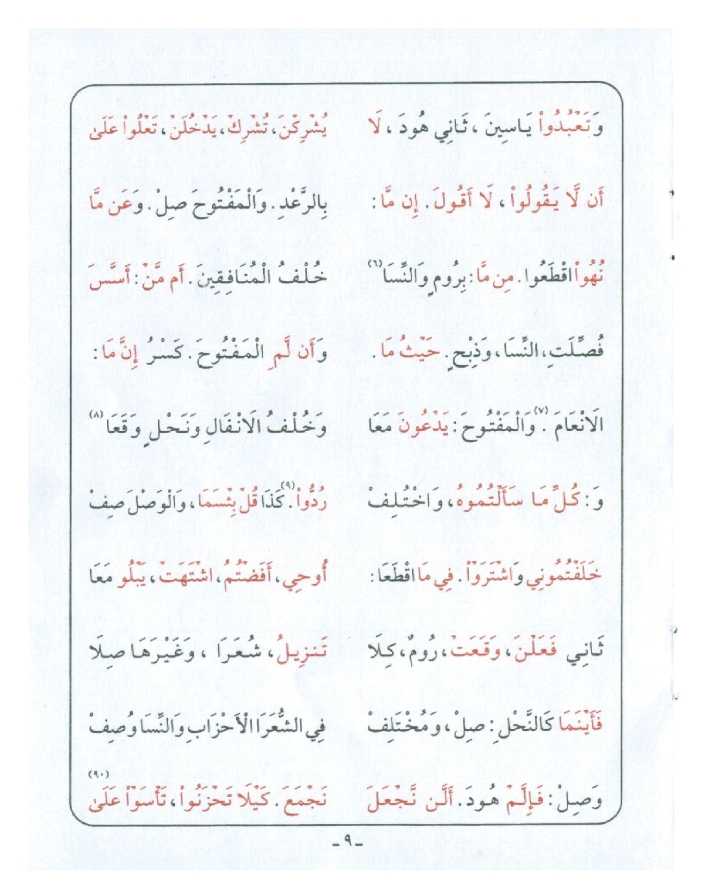 وَتَعْبُدُواْ يَاسِينَ، ثَانِي هُودَ، لَا يُشْرِكْنَ، تُشْرِكْ، يَدْخُلَنْ، تَعْلُواْ عَلَىٰ
أَن لَّا يَقُولُواْ، لَا أَقُولَ. إِن مَّا: بِالرَّعْدِ. وَالْمَفْتُوحَ صِلْ. وَعَن مَّا
نُهُواْ اقْطَعُوا. مِن مَّا: بِرُومٍ وَالنِّسَا (٦) خُلْفُ الْمُنَافِقِينَ. أَم مَّنْ: أَسَّسَ
فُصِّلَتِ، النِّسَا، وَذِبْحٍ. حَيْثُ مَا. وَأَن لَّمِ الْمَفْتُوحَ. كَسْرُ إِنَّ مَا:
الَانْعَامَ (٧). وَالْمَفْتُوحَ: يَدْعُونَ مَعَا وَخُلْفُ الَانْفَالِ وَنَحْلٍ وَقَعَا (٨)
وَ: كُلِّ مَا سَأَلْتُمُوهُ، وَاخْتُلِفْ رُدُّواْ (٩). كَذَا قُلْ بِئْسَمَا، وَالْوَصْلَ صِفْ
خَلَفْتُمُونِي وَاشْتَرَوْاْ. فِي مَا اقْطَعَا: أُوحِي، أَفَضْتُمُ، اشْتَهَتْ، يَبْلُو مَعَا
ثَانِي فَعَلْنَ، وَقَعَتْ، رُومٌ، كِلَا تَنزِيلُ، شُعَرَا، وَغَيْرَهَا صِلَا
فَأَيْنَمَا كَالنَّحْلِ: صِلْ، وَمُخْتَلِفْ فِي الشُّعَرَا الْأَحْزَابِ وَالنِّسَا وُصِفْ
وَصِلْ: فَإِلَّمْ هُودَ. أَلَّن نَّجْعَلَ نَجْمَعَ. كَيْلَا تَحْزَنُواْ، تَأْسَوْاْ عَلَىٰ (٩٠)
- ٩ -